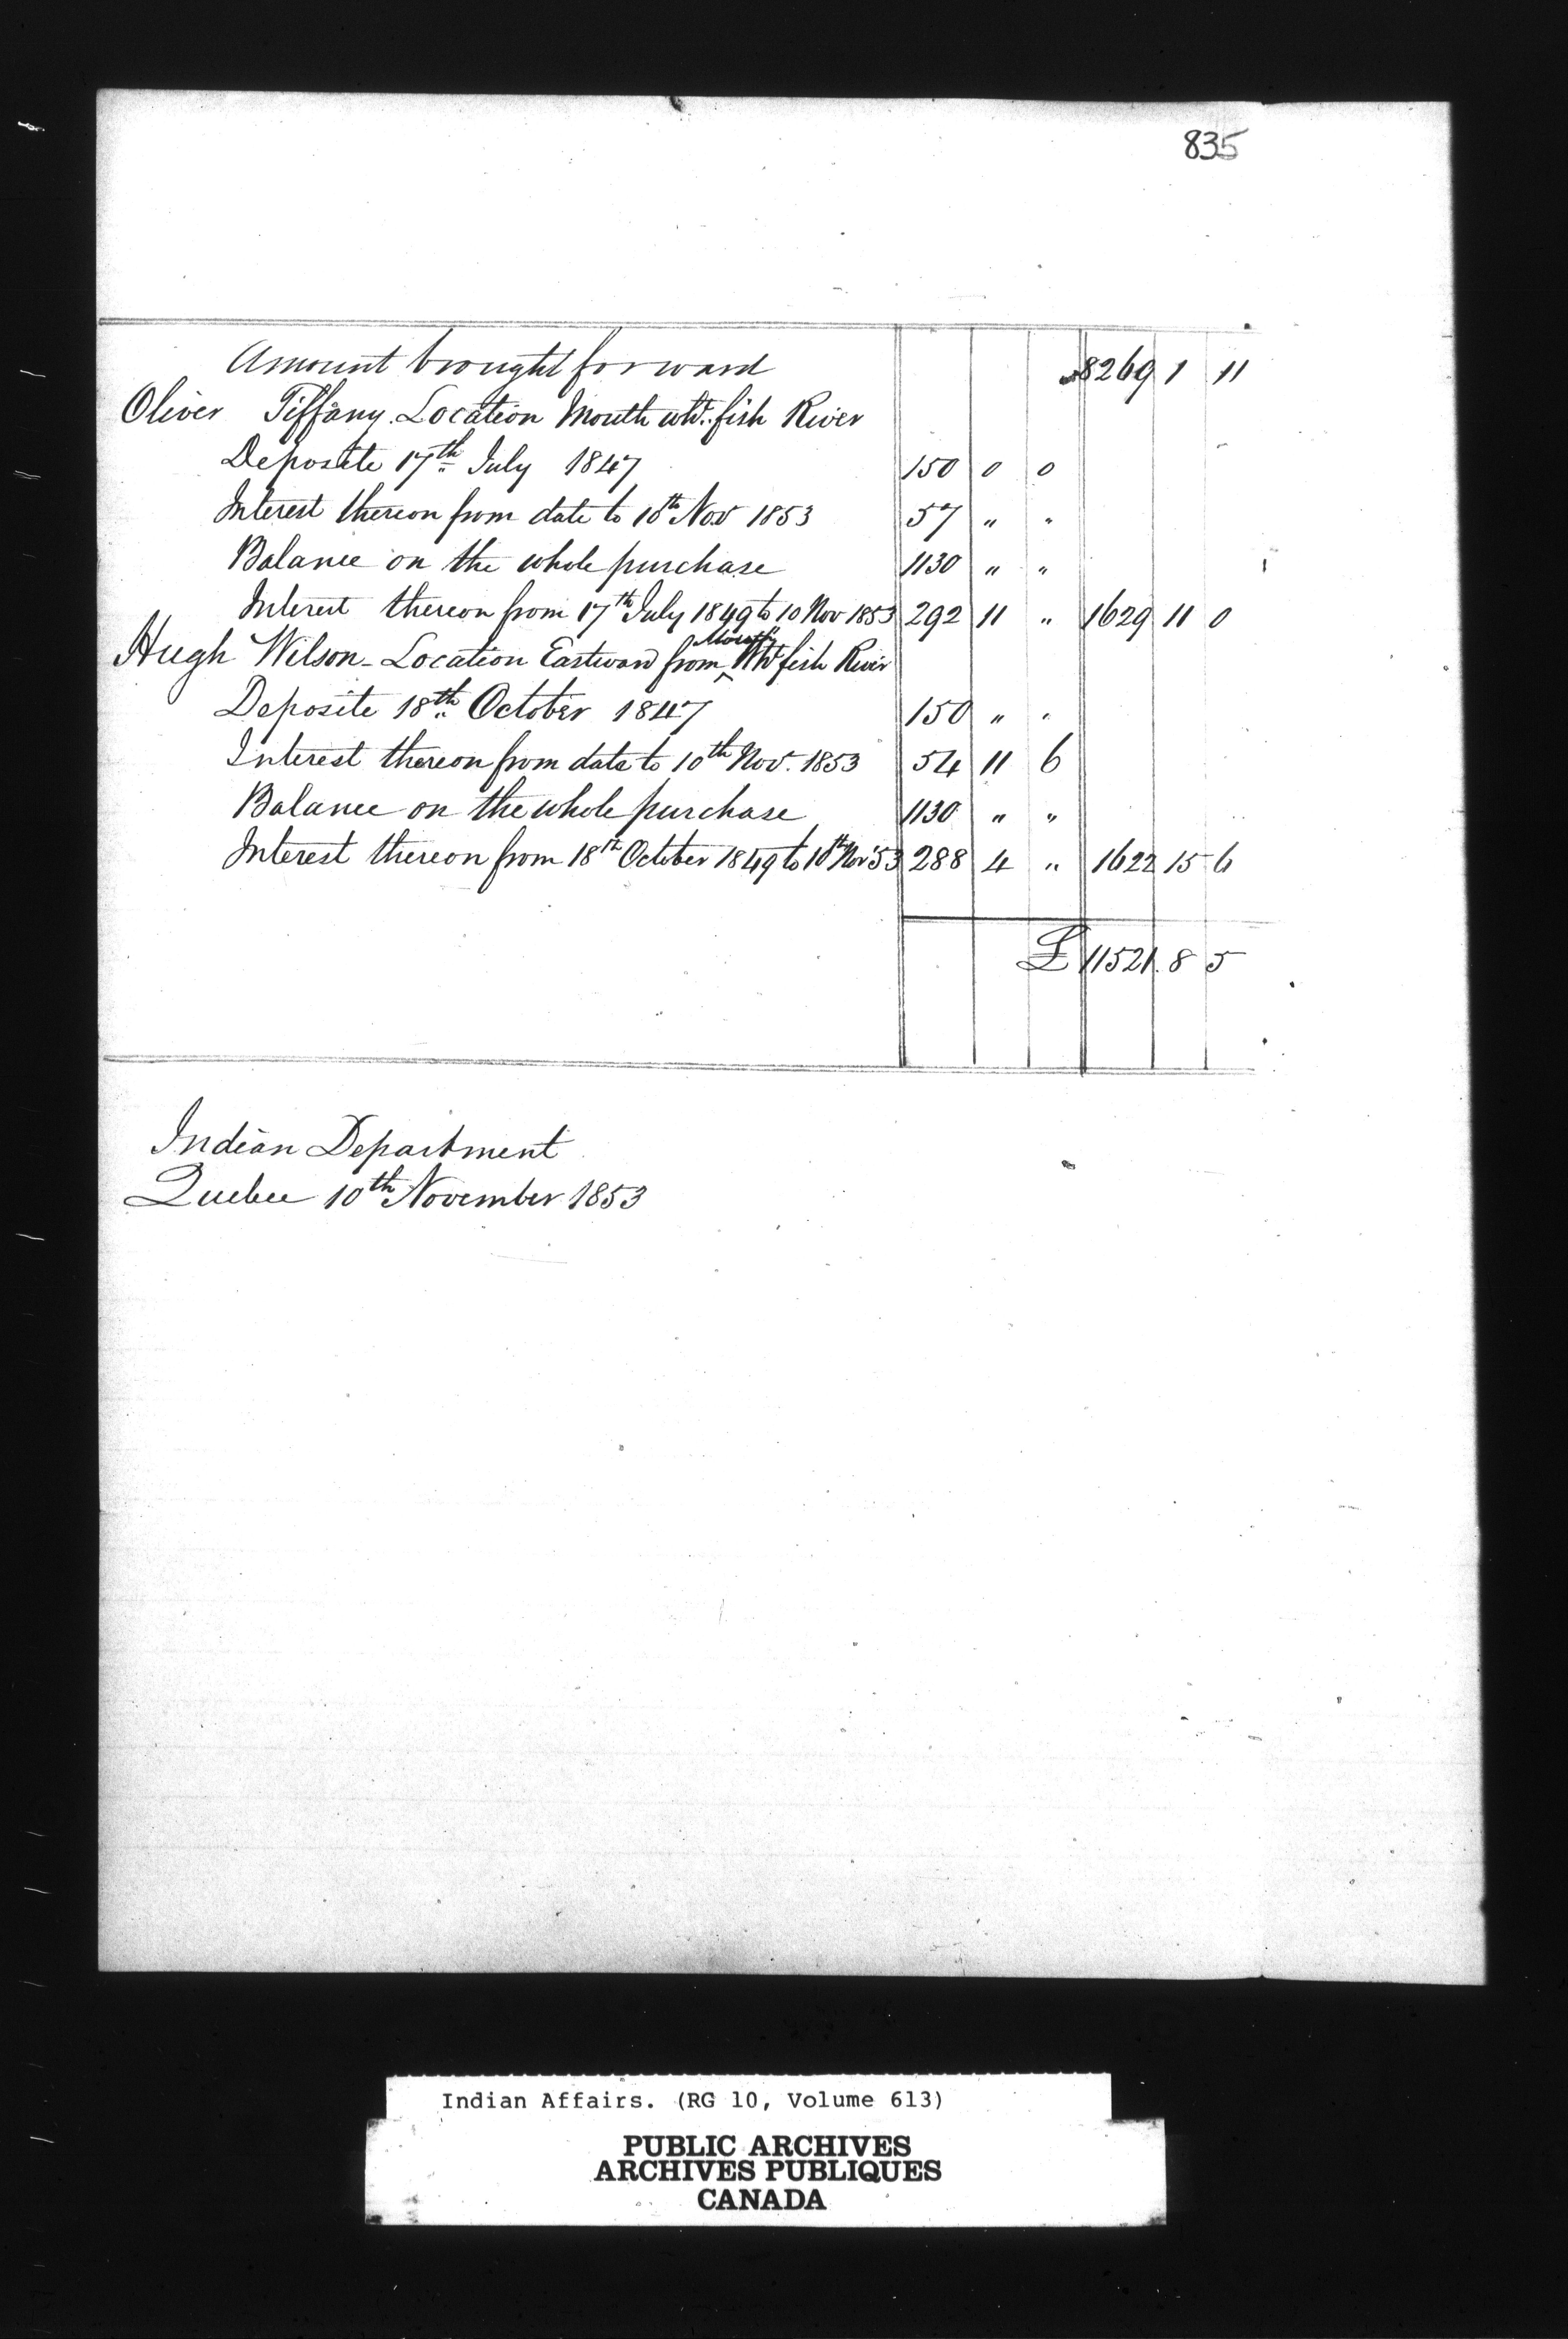 835
Amount brought forward 8269 1 11
Oliver Tiffany. Location Mouth wht. fish River
Deposite 17th July 1847 150 0 0
Interest thereon from date to 10th Nov 1853 57 " "
Balance on the whole purchase 1130 " "
Interest thereon from 17th July 1849 to 10 Nov 1853 292 11 " 1629 11 0
Hugh Wilson - Location Eastward from Mouth Wht fish River
Deposite 18th October 1847 150 " "
Interest thereon from date to 10th Nov. 1853 54 11 6
Balance on the whole purchase 1130 " "
Interest thereon from 18th October 1849 to 10th Nov 53 288 4 " 1622 15 6
£ 11521. 8 5
Indian Department
Quebec 10th November 1853
Indian Affairs. (RG 10, Volume 613)
PUBLIC ARCHIVES
ARCHIVES PUBLIQUES
CANADA